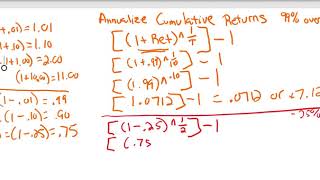 Annualize Cumulative Returns 99% over
[(1+Ret)^1/T]-1
[(1+.99)^.10]-1
[(1.99)^.10]-1
[1.0712]-1 = .0712 or +7.12
-25%
[(1-.25)^1/2]-1
[(.75
,.01)=1.01
+.10)=1.10
.(1+1.00)=2.00
(1+10.00)=11.00
(1-.01)=.99
=(1-.10)=.90
=(1-.25)=.75